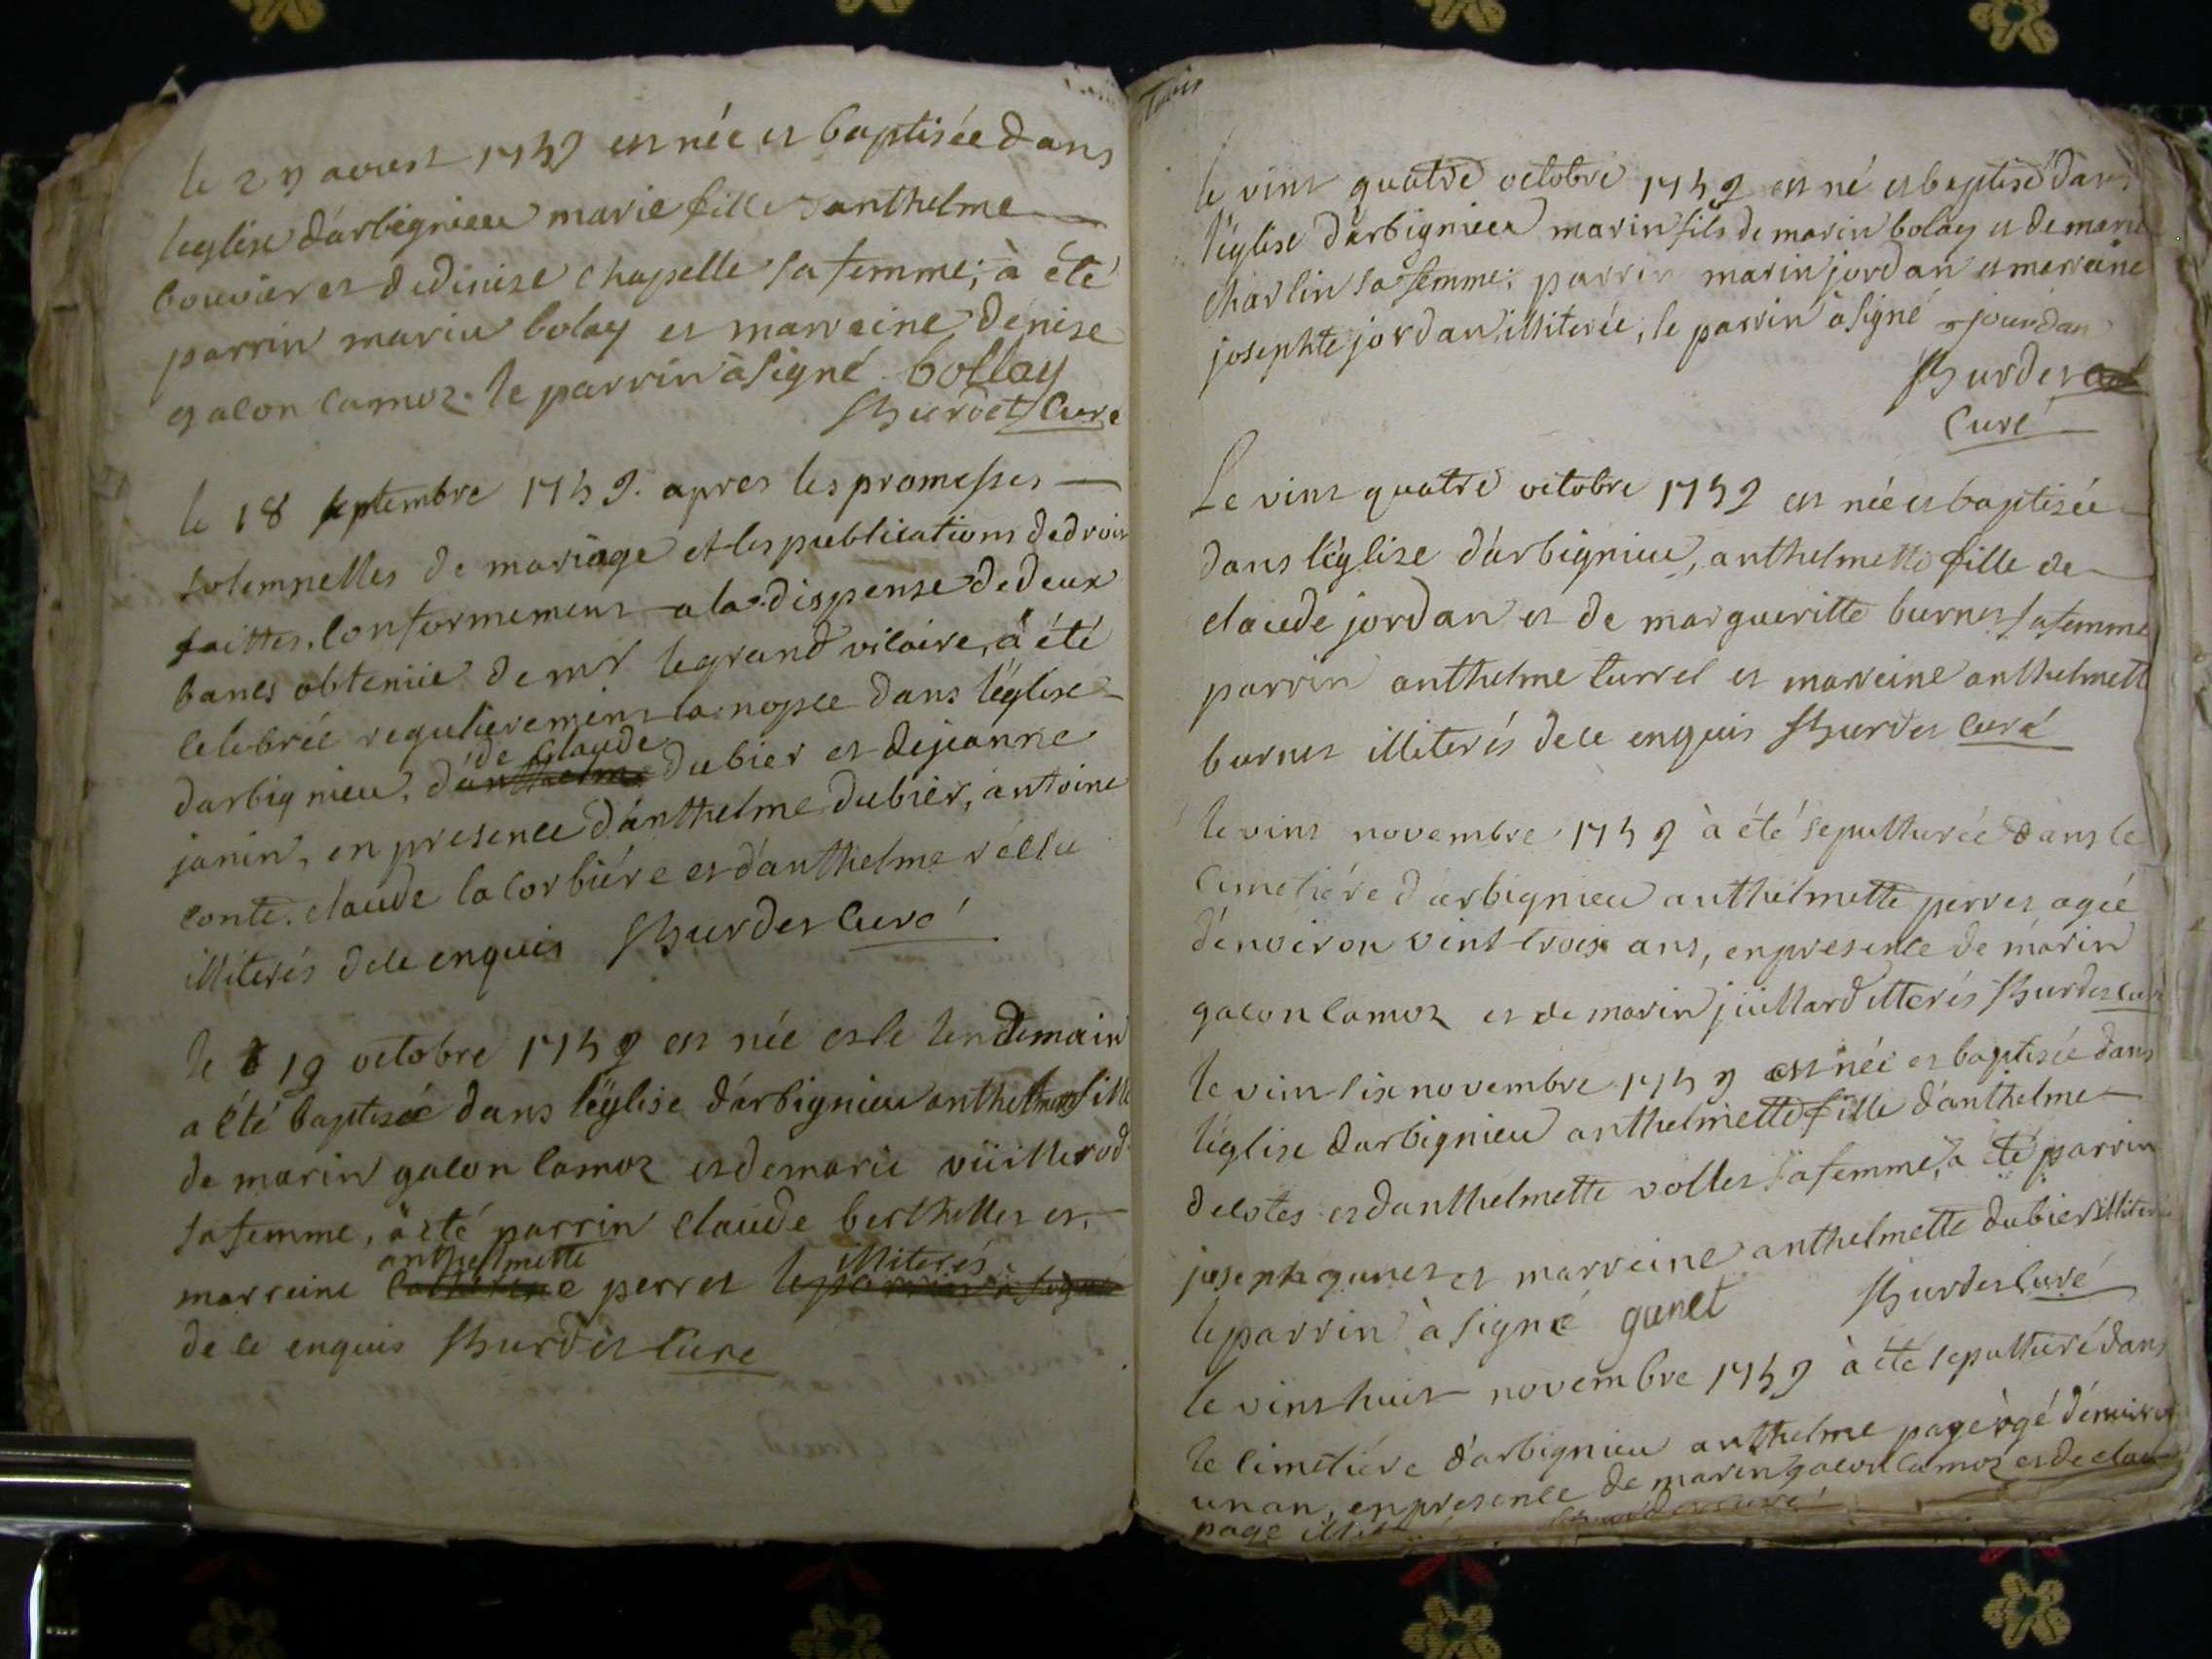 le 29 aoust 1759 est née et baptisée dans
leglise d'arbignieu marie fille d'anthelme
bouvier et de denise chapelle sa femme; à été
parrin marin bolay et marreine denise
galon camoz. le parrin à signé bollay
Burdet Curé
le 18 septembre 1759. apres les promesses
solemnelles de mariage et les publications de droit
faittes, conformement a la dispense de deux
bancs obtenüe de mr le grand vicaire, à été
celebrée regulierement la nopce dans l'église
darbignieu, de claude dubier et de jeanne
janin, en presence d'anthelme dubier, antoine
conte. claude la corbiére et d'anthelme réclu
illiterés de ce enquis Burdet Curé
le 19 octobre 1759 est née et le lendemain
a été baptisée dans l'église d'arbignieu fille
de marin galon camoz et de marie vüillerod
sa femme, à été parrin claude berthellet et
anthelmette illiterés
marreine perret
de ce enquis Burdet Curé
le vint quatre octobre 1759 est né et baptisé dans
l'église d'arbignieu marin fils de marin bolay et de marie
charlin sa femme; parrin marin jordan et marreine
josephte jordan, illiterée, le parrin à signé jourdan
Burdet
Curé
Le vint quatre octobre 1759 est née et baptisée
dans l'église d'arbignieu, anthelmette fille de
claude jordan et de margueritte burnet sa femme
parrin anthelme currel et marreine anthelmette
burnet illiterés de ce enquis Burdet curé
le vint novembre 1759 à été sepulturée dans le
cimetiére d'arbignieu anthelmette perret agée
d'environ vint trois ans, en presence de marin
galon camoz et de marin jüillard itterés Burdet cur
le vint six novembre 1759 est née et baptisée dans
l'église darbignieu anthelmette fille d'anthelme
decotes et d'anthelmette vollet sa femme, à été parrin
joseph gunet et marreine anthelmette dubier illiterée
le parrin à signé gunet Burdet Curé
le vint huit novembre 1759 à été sepulturé dans
le cimetiére d'arbignieu anthelme page àgé d'environ
un an, en presence de marin galon camoz et de clau
page